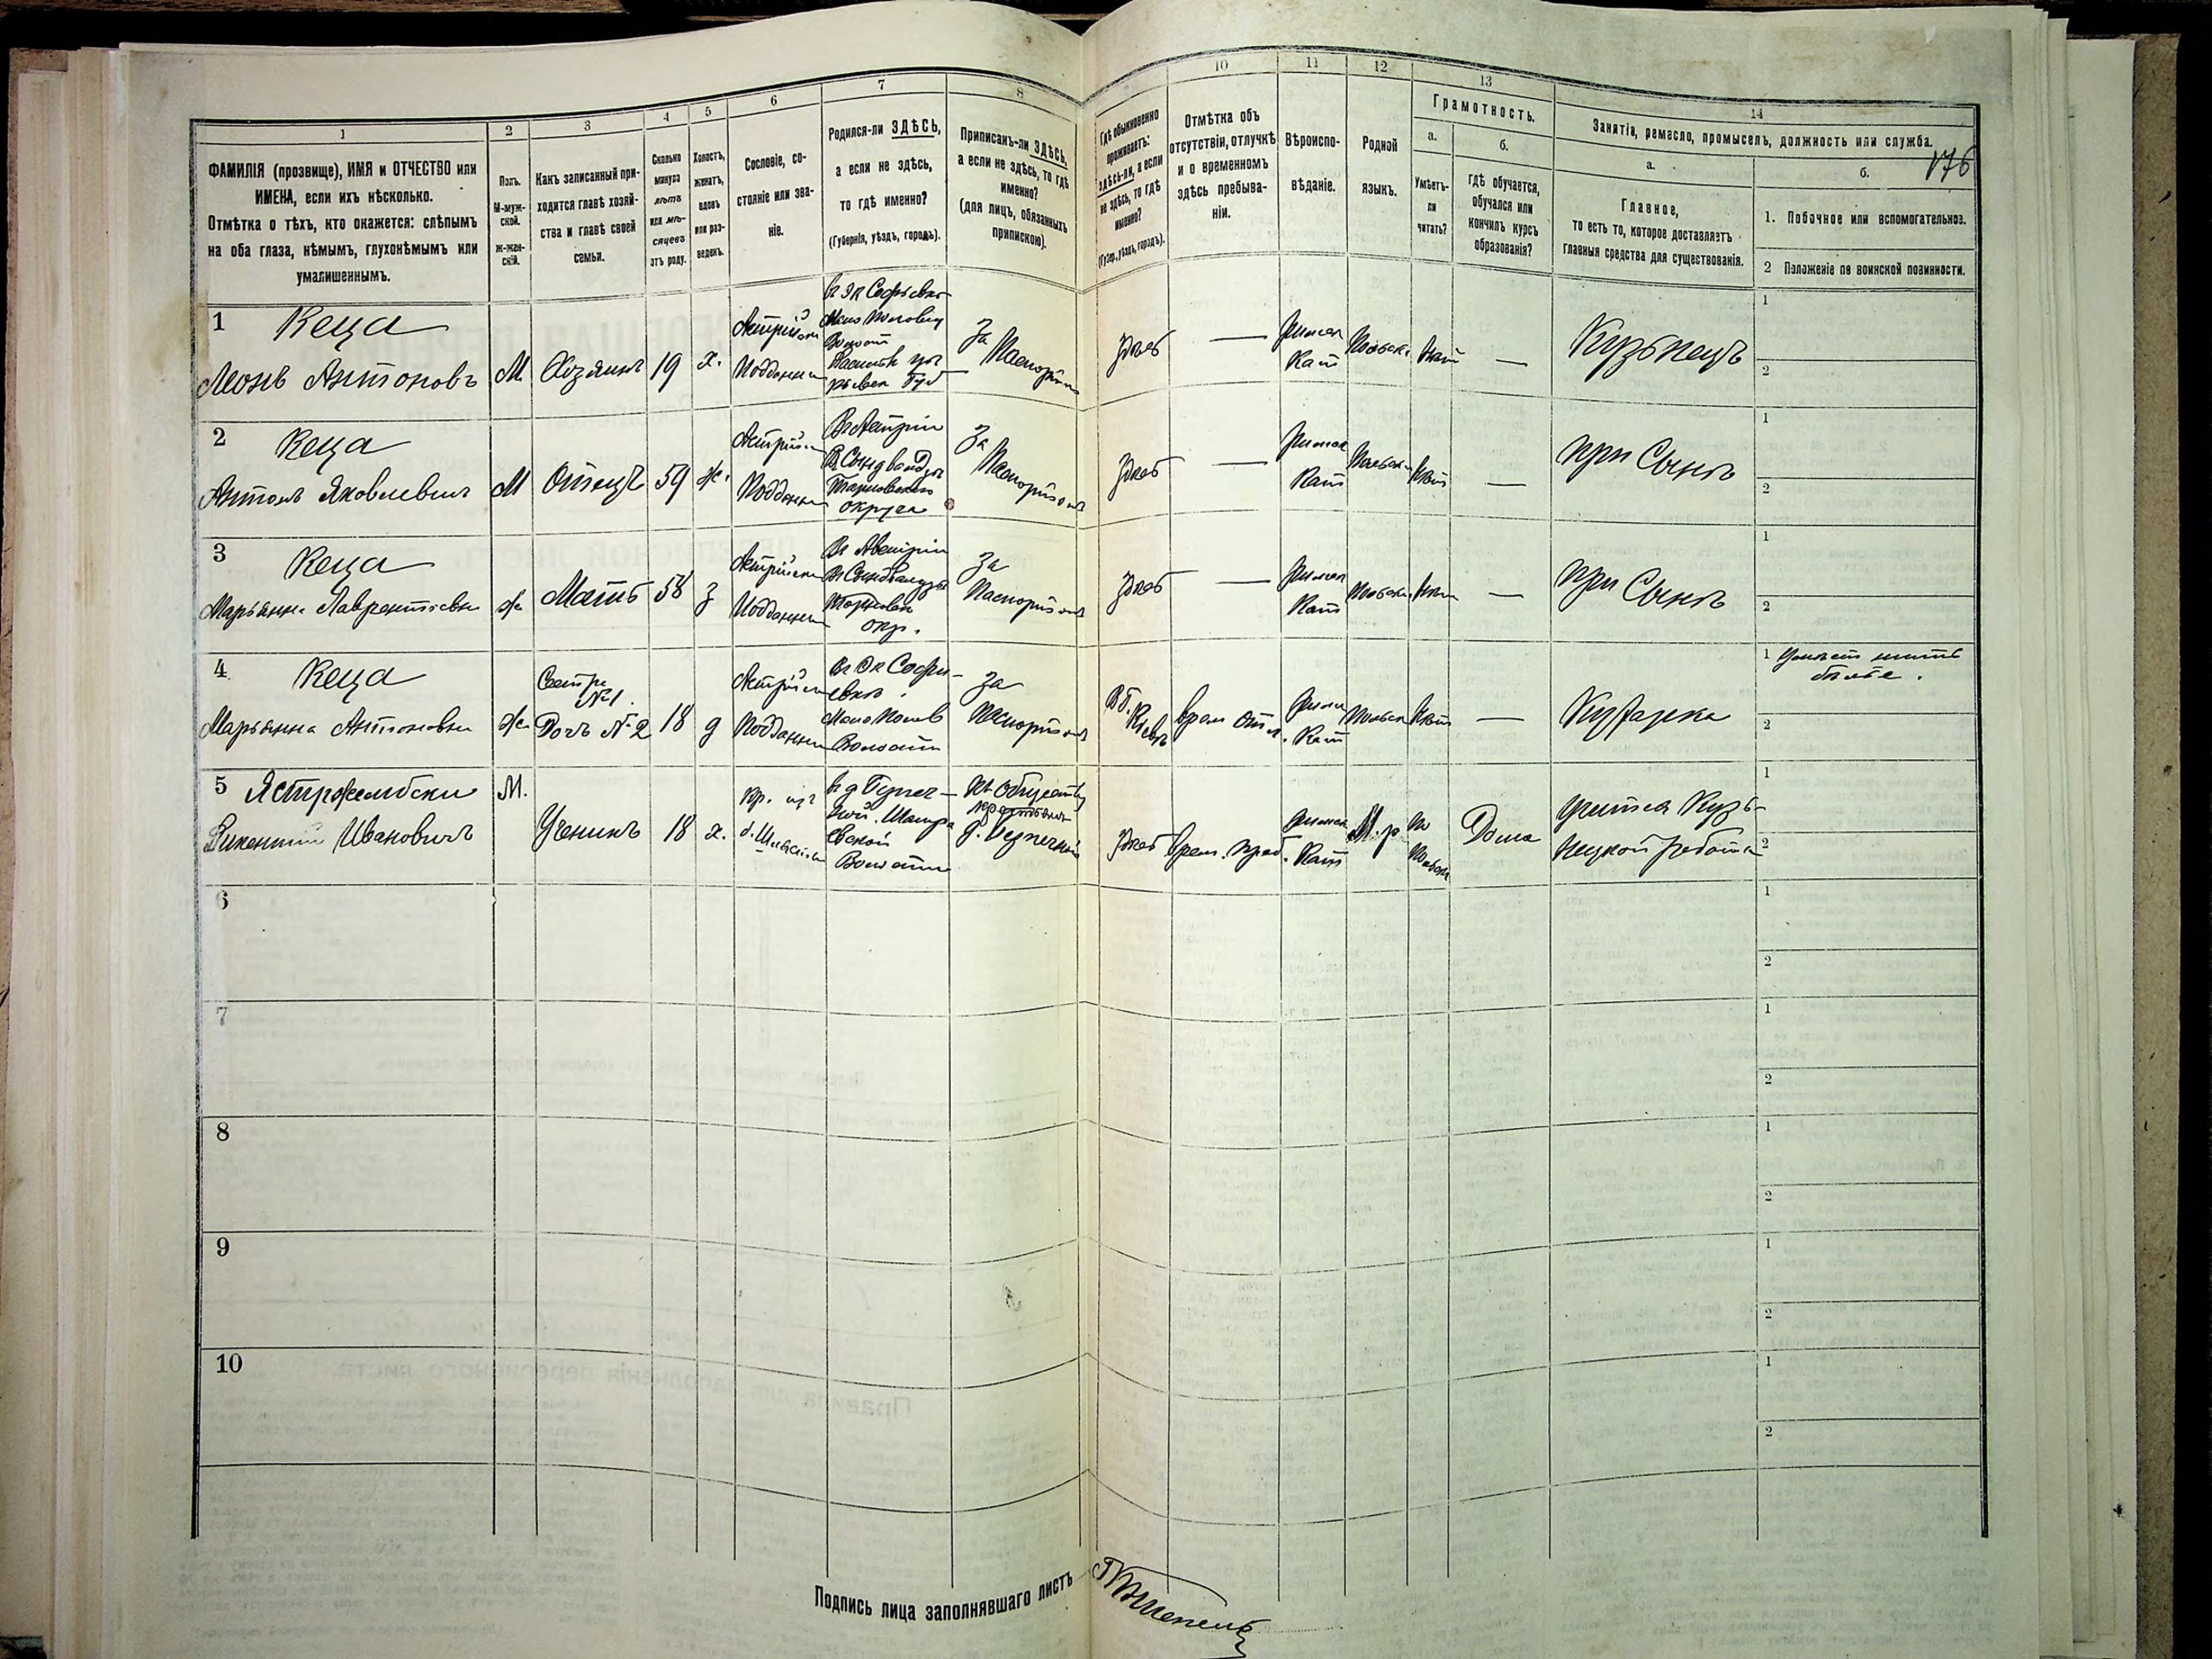 1
2
3
4
5
6
7
8
10
11
12
13
14
ФАМИЛІЯ (прозвище), ИМЯ и ОТЧЕСТВО или
ИМЕНА, если ихъ нѣсколько.
Отмѣтка о тѣхъ, кто окажется: слѣпымъ
на оба глаза, нѣмымъ, глухонѣмымъ или
умалишеннымъ.
Полъ.
М-муж-
ской.
Ж-жен-
скій.
Какъ записанный при-
ходится главѣ хозяй-
ства и главѣ своей
семьи.
Сколько
минуло
лѣтъ
или мѣ-
сяцевъ
отъ роду.
Холостъ,
женатъ,
вдовъ
или раз-
веденъ.
Сословіе, со-
стояніе или зва-
ніе.
Родился-ли ЗДѢСЬ,
а если не здѣсь,
то гдѣ именно?
(Губернія, уѣздъ, городъ).
Приписанъ-ли ЗДѢСЬ,
а если не здѣсь, то гдѣ
именно?
(для лицъ, обязанныхъ
припискою).
Гдѣ обыкновенно
проживаетъ:
здѣсь-ли, а если
не здѣсь, то гдѣ
именно?
(Губер., уѣздъ, городъ).
Отмѣтка объ
отсутствіи, отлучкѣ
и о временномъ
здѣсь пребыва-
ніи.
Вѣроиспо-
вѣданіе.
Родной
языкъ.
Грамотность.
а.
Умѣетъ-
ли
читать?
б.
гдѣ обучается,
обучался или
кончилъ курсъ
образованія?
Занятіе, ремесло, промыселъ, должность или служба.
176
а.
Главное,
то есть то, которое доставляетъ
главныя средства для существованія.
б.
1. Побочное или вспомогательное.
2 Положеніе по воинской повинности.
1 Кеца
Леонъ Антоновъ
М
Хозяинъ
19
х.
Подданн
За
Паспортом
Здѣсь
—
Римск
Кат
Польск.
Нѣт
—
Кузнецъ
1
2
2 Кеца
Антонъ Яковлевич
М
Отецъ
59
ж.
Подданн
округа
За
Паспортом
Здѣсь
—
Римск
Кат
Польск
Нѣт
—
при Сынѣ
1
2
3 Кеца
Марьянна Лаврентьевна
ж
Мать
58
з
Подданн
окр.
За
Паспортом
Здѣсь
—
Римск
Кат
Польск
Нѣт
—
при Сынѣ
1
2
4 Кеца
Марьянна Антоновна
ж
Сестра
№1.
Дочь №2
18
д
Подданн
Вг Эк Софи-
евко
Волости
За
Паспортом
Вб.
Кіевѣ
врем отл.
Римск
Кат
Польск
Нѣт
—
Кухарка
1 Умѣет шить
бѣлье.
2
5
Викентій Ивановичъ
М.
Ученикъ
18
х.
кр. из
Волости
Къ Обществу
Здѣсь
врем. преб.
Римск
Кат
М. р.
По
Польск
Дома
учится Куз-
нецкой работѣ
1
2
6
1
2
7
1
2
8
1
2
9
1
2
10
1
2
Подпись лица заполнявшаго листъ